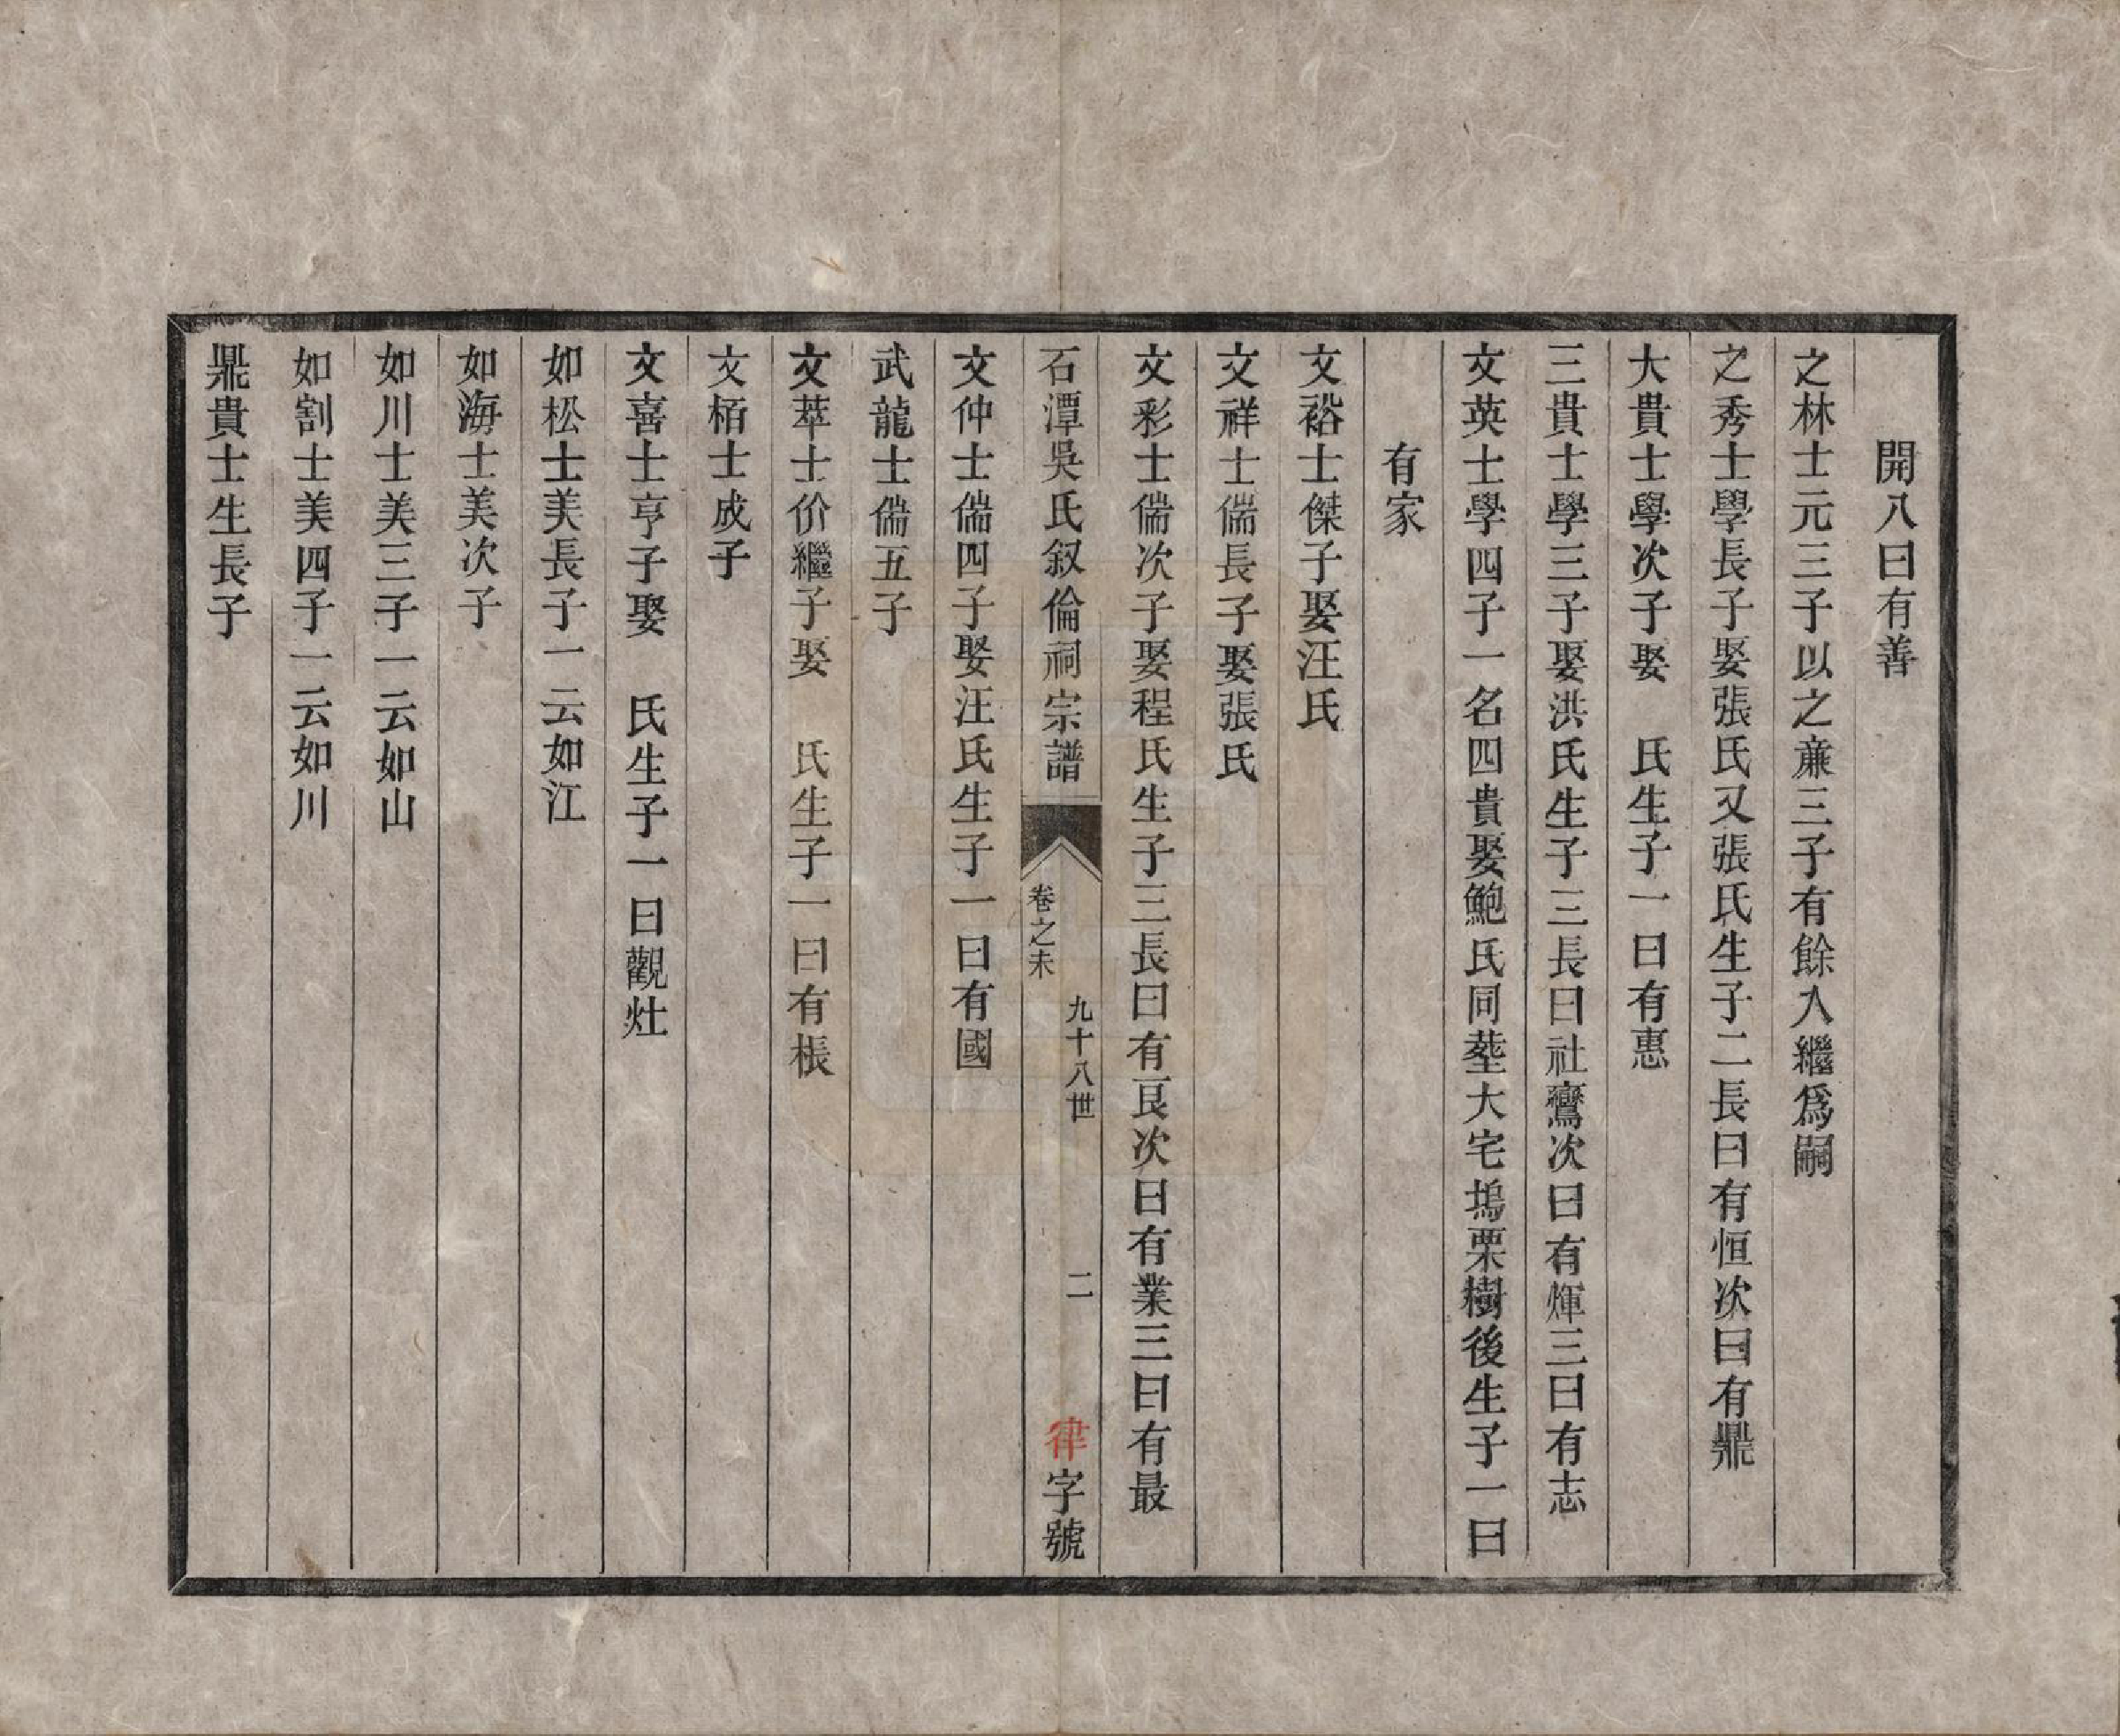 開八曰有善
之林士元三子以之蔗三子有餘入繼爲嗣
之秀士學長子娶張氏又張氏生子二長曰有恒次曰有鼎
大貴士學次子娶　氏生子一曰有惠
三貴士學三子娶洪氏生子三長曰社鸞次曰有煇三曰有志
文英士學四子一名四貴娶鮑氏同塟大宅塢栗樹後生子一曰
有家
文裕士傑子娶汪氏
文祥士儒長子娶張氏
文彩士儒次子娶程氏生子三長曰有艮次曰有業三曰有最
石潭吳氏叙倫祠宗譜　卷之未　九十八世　二　律字號
文仲士儒四子娶汪氏生子一曰有國
武龍士儒五子
文萃士价繼子娶　氏生子一曰有棖
文栢士成子
文喜士亨子娶　氏生子一曰觀灶
如松士美長子一云如江
如海士美次子
如川士美三子一云如山
如割士美四子一云如川
鼎貴士生長子